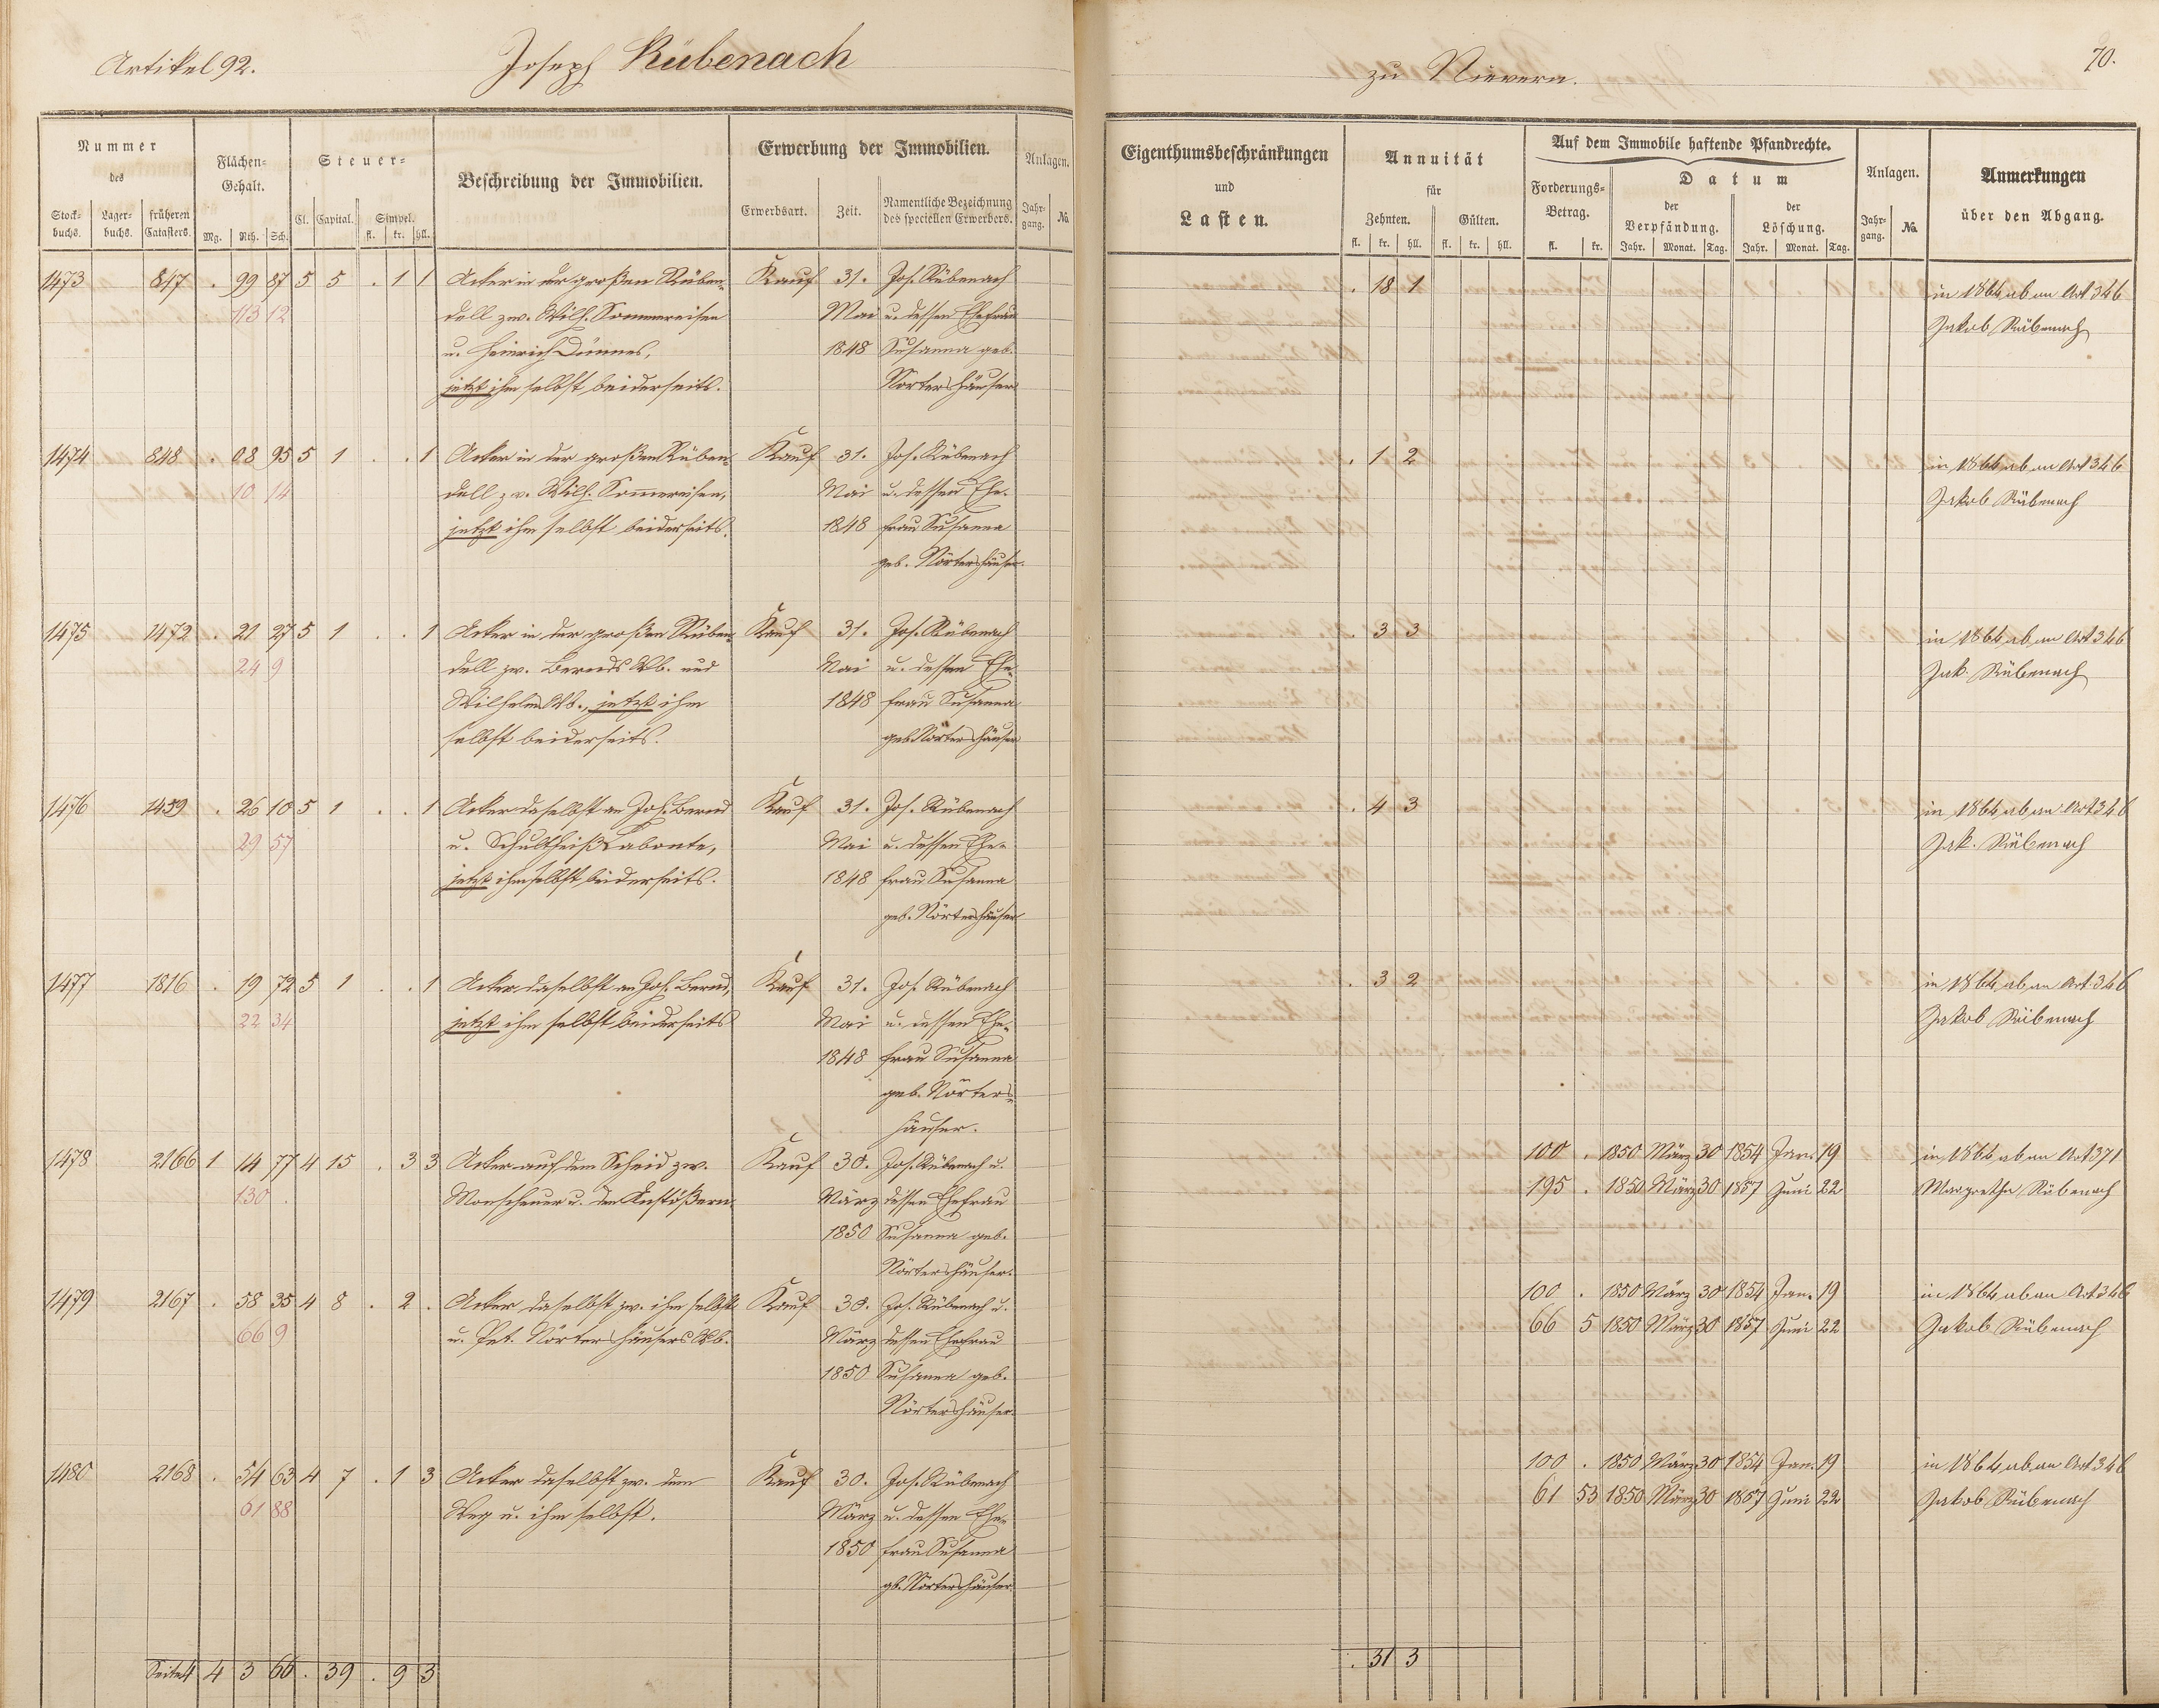 Artikel 92.
Joseph Rübenach
zu Nievern.
70.
Nummer
des
Stock-
buchs.
Lager-
buchs.
früheren
Catasters.
Flächen-
Gehalt.
Mg. Rth. Sch.
Steuer-
Cl. Capital. Simpel.
fl. kr. hll.
Beschreibung der Immobilien.
Erwerbung der Immobilien.
Erwerbsart. Zeit. Namentliche Bezeichnung
des speciellen Erwerbers.
Anlagen.
Jahr-
gang. No.
Eigenthumsbeschränkungen
und
Lasten.
Annuität
für
Zehnten. Gülten.
fl. kr. hll. fl. kr. hll.
Auf dem Immobile haftende Pfandrechte.
Forderungs-
Betrag.
fl. kr.
Datum
der
Verpfändung.
Jahr. Monat. Tag.
der
Löschung.
Jahr. Monat. Tag.
Anlagen.
Jahr-
gang. No.
Anmerkungen
über den Abgang.
1473 847 . 99 87 5 5 . 1 1 Acker in der großen Rüben- Kauf 31. Jos. Rübenach . 18 1 in 1864 ab an Art 346
113 12 dell zw. Wilh. Sommereisen Mai u. dessen Ehefrau Jakob Rübenach
u. Heinrich Dünnes, 1848 Susanna geb.
jetzt ihm selbst beiderseits. Nörtershäuser
1474 848 . 08 95 5 1 . . 1 Acker in der großen Rüben- Kauf 31. Jos. Rübenach . 1 2 in 1864 ab an Art 346
10 14 dell zw. Wilh. Sommereisen, Mai u. dessen Ehe- Jakob Rübenach
jetzt ihm selbst beiderseits. 1848 frau Susanna
geb. Nörtershäuser.
1475 1472 . 21 27 5 1 . . 1 Acker in der großen Rüben- Kauf 31. Jos. Rübenach . 3 3 in 1864 ab an Art 346
24 9 dell zw. Bernds Wb. und Mai u. dessen Ehe- Jak. Rübenach
Wilhelm Wb., jetzt ihm 1848 frau Susanna
selbst beiderseits. geb. Nörtershäuser
1476 1459 . 26 10 5 1 . . 1 Acker daselbst an Joh. Bernd Kauf 31. Jos. Rübenach . 4 3 in 1864 ab an Art 346
29 57 u. Schultheiß Labonte, Mai u. dessen Ehe- Jak. Rübenach
jetzt ihm selbst beiderseits. 1848 frau Susanna
geb. Nörtershäuser
1477 1816 . 19 72 5 1 . . 1 Acker daselbst an Joh. Bernd, Kauf 31. Jos. Rübenach . 3 2 in 1864 ab an Art. 346
22 34 jetzt ihm selbst beiderseits Mai u. dessen Ehe- Jakob Rübenach
1848 frau Susanna
geb. Nörters-
häuser.
1478 2166 1 14 77 4 15 . 3 3 Acker auf dem Scheid zw. Kauf 30. Jos. Rübenach u. 100 . 1850 März 30 1854 Jan. 19 in 1864 ab an Art 371
130 . Monscheuer u. den Anstößern. März dessen Ehefrau 195 . 1850 März 30 1857 Juni 22 Margretha Rübenach
1850 Susanna geb.
Nörtershäuser.
1479 2167 . 58 35 4 8 . 2 . Acker daselbst zw. ihm selbst Kauf 30. Jos. Rübenach u. 100 . 1850 März 30 1854 Jan. 19 in 1864 ab an Art 346
66 9 u. Pet. Nörtershäusers Wb. März dessen Ehefrau 66 5 1850 März 30 1857 Juni 22 Jakob Rübenach
1850 Susanna geb.
Nörtershäuser.
1480 2168 . 54 63 4 7 . 1 3 Acker daselbst zw. dem Kauf 30. Jos. Rübenach 100 . 1850 März 30 1854 Jan. 19 in 1864 ab an Art 346
61 88 Weg u. ihm selbst. März u. dessen Ehe- 61 53 1850 März 30 1857 Juni 22 Jakob Rübenach
1850 frau Susanna
gb. Nörtershäuser.
Seite 4 4 3 66 . 39 . 9 3 . 31 3